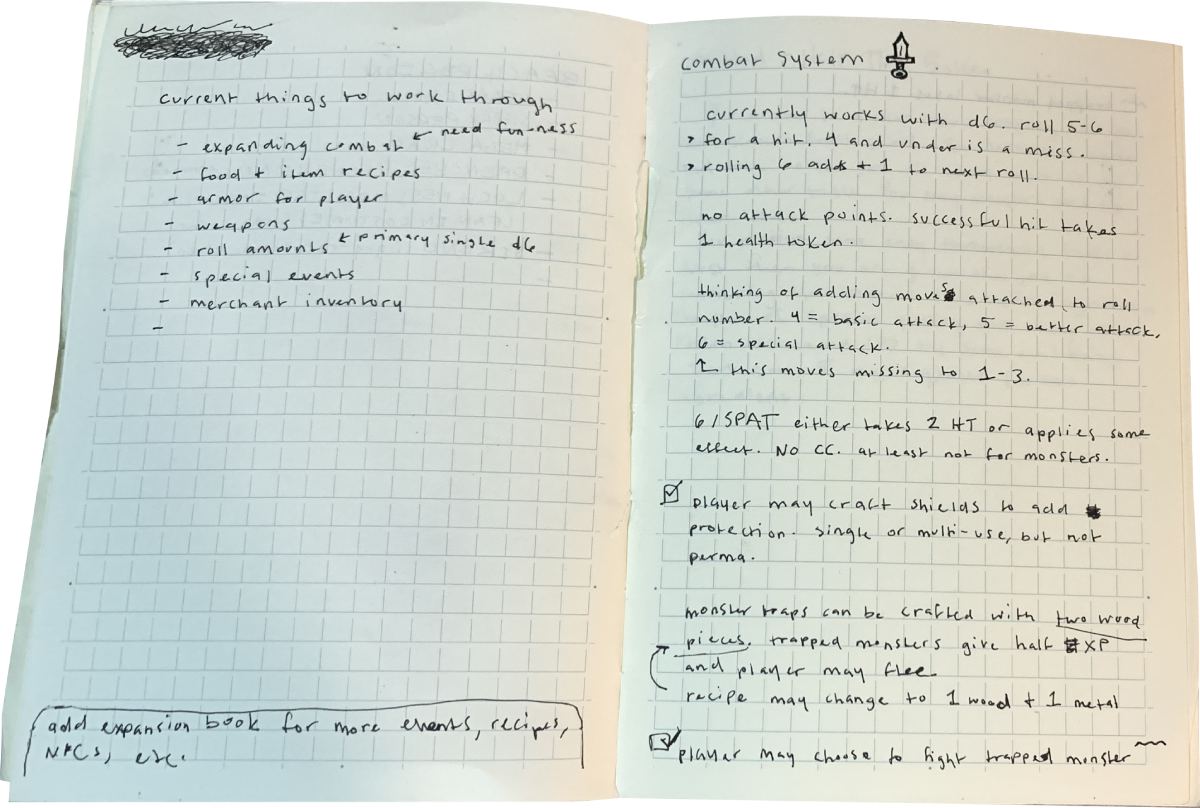 current things to work through
- expanding combat ← need fun-ness
- food + item recipes
- armor for player
- weapons
- roll amounts ← primary single d6
- special events
- merchant inventory
-
add expansion book for more events, recipes,
NPCs, etc.
combat system
currently works with d6. roll 5-6
> for a hit. 4 and under is a miss.
> rolling 6 adds + 1 to next roll.
no attack points. successful hit takes
1 health token.
thinking of adding moves attached to roll
number. 4 = basic attack, 5 = better attack,
6 = special attack.
↑ this moves missing to 1-3.
6/SPAT either takes 2 HT or applies some
effect. No CC. at least not for monsters.
☑ player may craft shields to add
protection. single or multi-use, but not
perma.
monster traps can be crafted with two wood
pieces. trapped monsters give half XP
and player may flee.
recipe may change to 1 wood + 1 metal
☑ player may choose to fight trapped monster